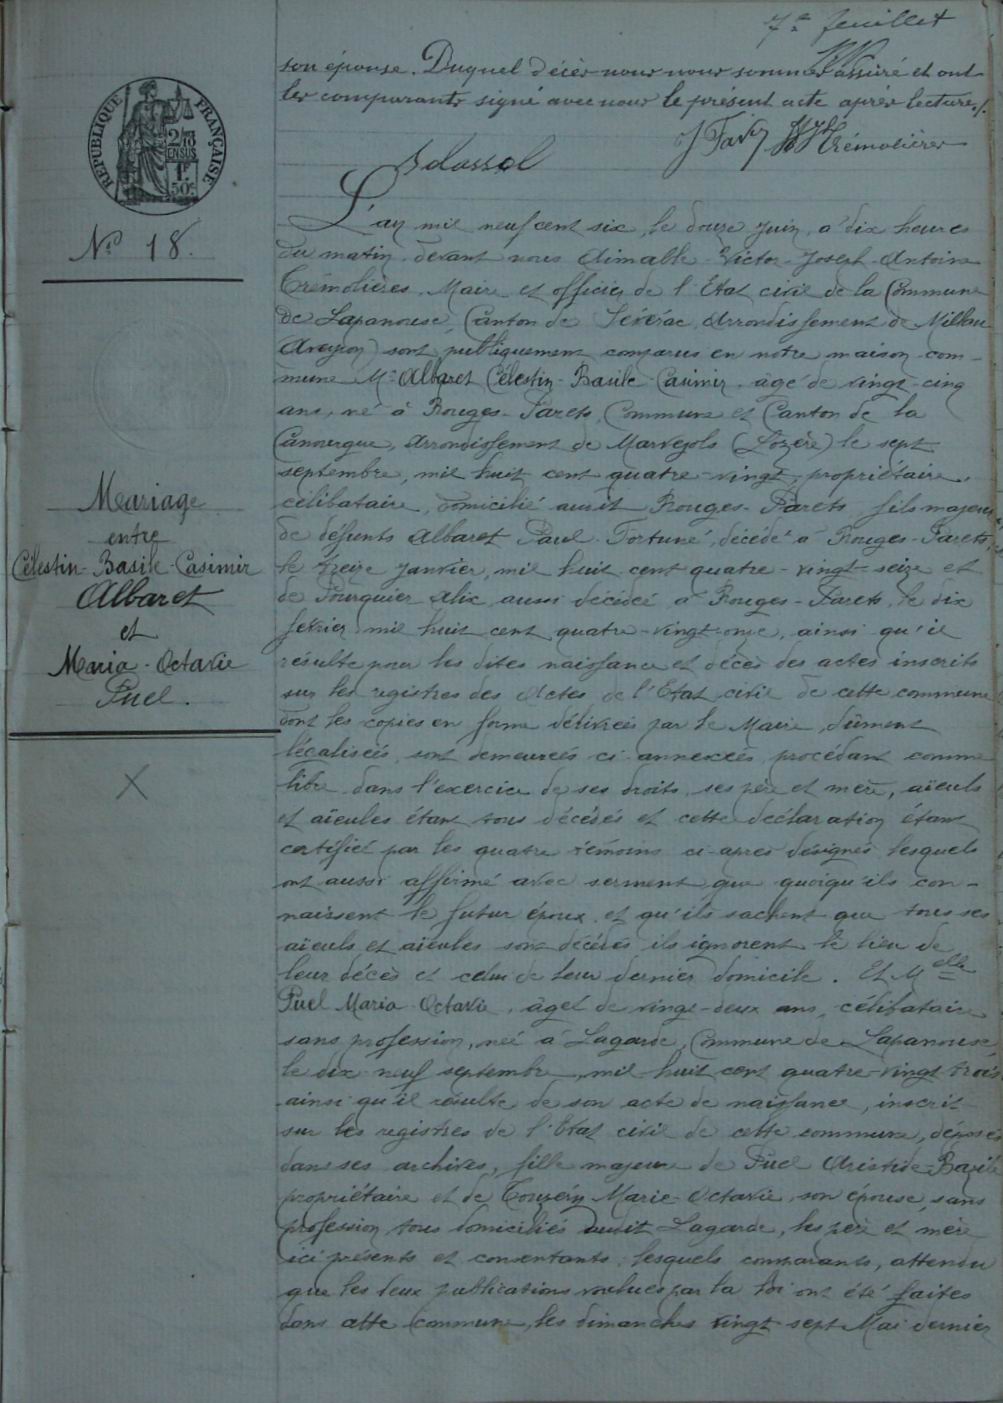 7e feuillet
son épouse. Duquel décès nous nous sommes assuré et ont
les comparants signé avec nous le présent acte après lecture./.
Trémolières
RÉPUBLIQUE FRANÇAISE
2/10 EN SUS
1F 50c
No 18.
Mariage
entre
Célestin-Basile-Casimir
Albaret
et
Maria-Octavie
Puel.
L'an mil neuf cent six, le douze juin, à dix heures
du matin, devant nous Aimable-Victor-Joseph-Antoine
Trémolières, Maire et officier de l'Etat civil de la Commune
de Lapanouse, (Canton de Sévérac, Arrondissement de Millau
Aveyron) sont publiquement comparus en notre maison com-
mune Mr Albaret Célestin-Basile-Casimir, âgé de vingt-cinq
ans, né à Rouges-Parets, Commune et Canton de la
Canourgue, Arrondissement de Marvejols (Lozère) le sept
septembre, mil huit cent quatre-vingt, propriétaire,
célibataire, domicilié audit Rouges-Parets, fils majeur
de défunts Albaret Paul-Fortuné, décédé à Rouges-Parets,
le treize janvier, mil huit cent quatre-vingt-seize et
de Fourquier Alix, aussi décédée à Rouges-Parets, le dix
février mil huit cent quatre-vingt-onze, ainsi qu'il
résulte pour les dites naissance et décès des actes inscrits
sur les registres des Actes de l'Etat civil de cette commune
dont les copies en forme délivrées par le Maire, dûment
légalisées, sont demeurées ci-annexées, procédant comme
libre dans l'exercice de ses droits, ses père et mère, aïeuls
et aïeules étant tous décédés et cette déclaration étant
certifiée par les quatre témoins ci-après désignés lesquels
ont aussi affirmé avec serment que quoiqu'ils con-
naissent le futur époux, et qu'ils sachent que tous ses
aïeuls et aïeules sont décédés ils ignorent le lieu de
leur décès et celui de leur dernier domicile. Et Melle
Puel Maria-Octavie, âgée de vingt-deux ans, célibataire
sans profession, née à Lagarde, Commune de Lapanouse,
le dix-neuf septembre, mil huit cent quatre-vingt trois
ainsi qu'il résulte de son acte de naissance, inscrit
sur les registres de l'Etat civil de cette commune, déposés
dans ses archives, fille majeure de Puel Aristide-Bazile
propriétaire et de Touzéry Marie-Octavie, son épouse, sans
profession, tous domiciliés audit Lagarde, les père et mère
ici présents et consentants; lesquels comparants, attendu
que les deux publications voulues par la loi ont été faites
dans cette commune, les dimanches vingt-sept Mai dernier